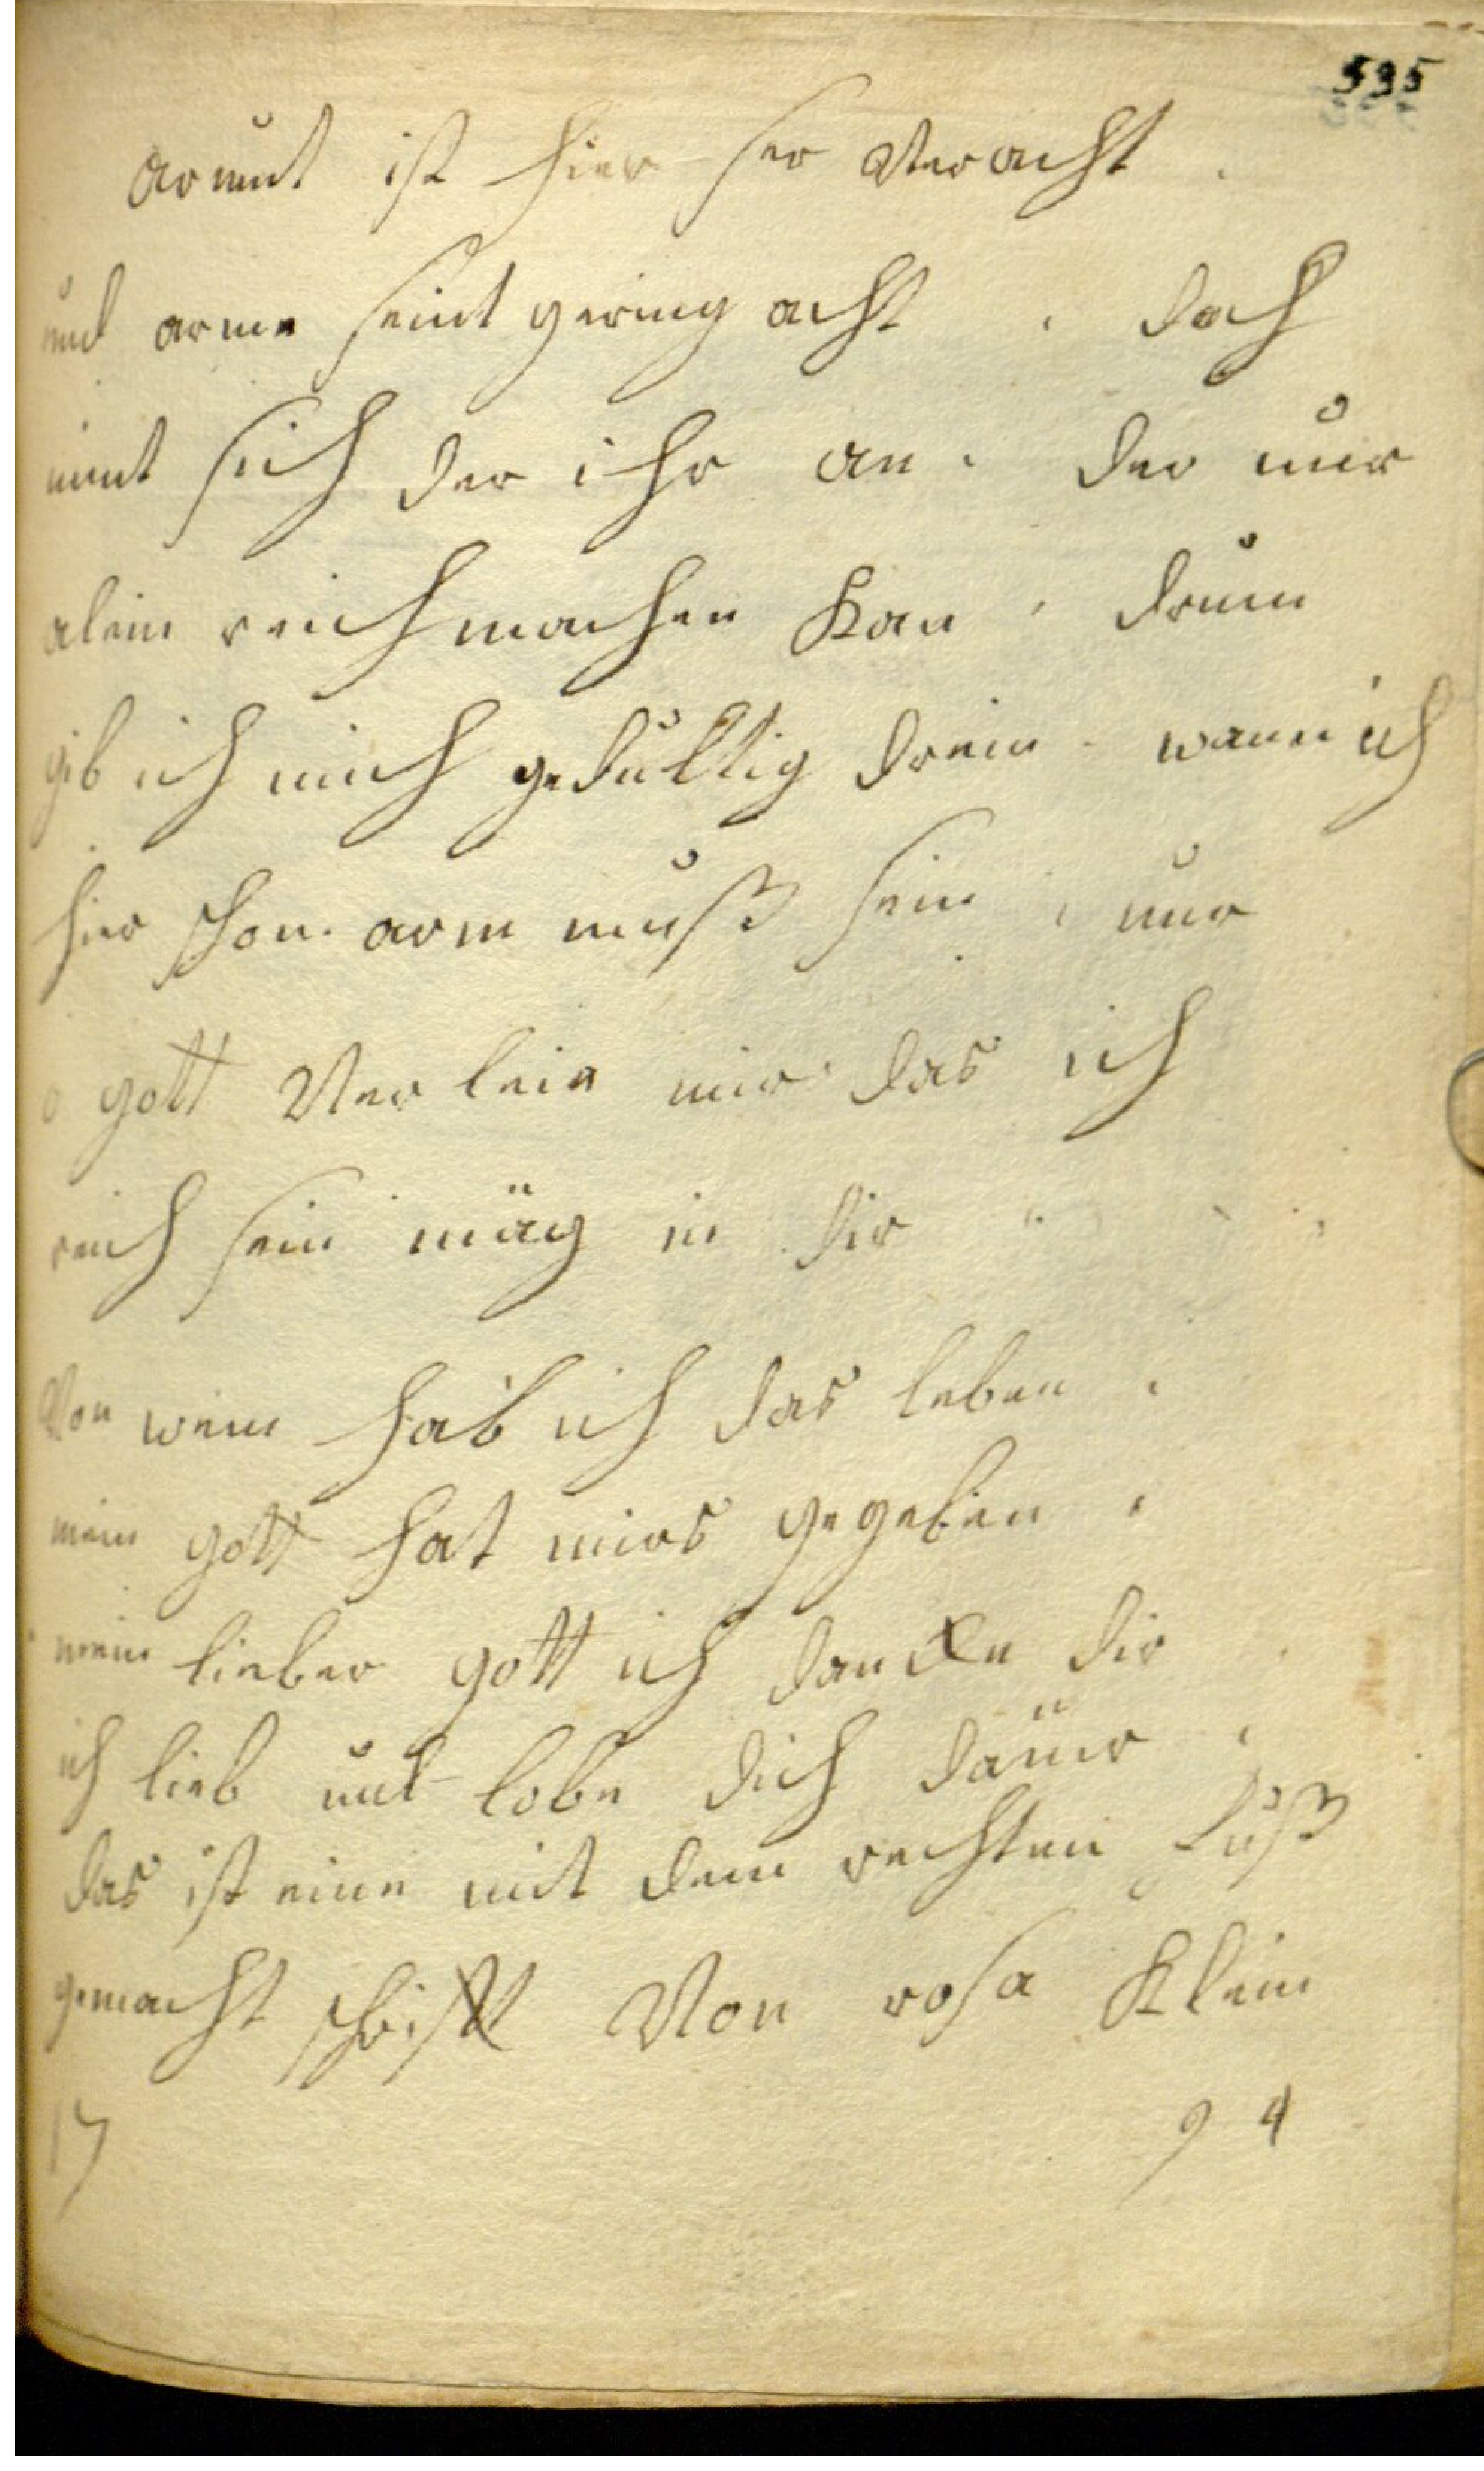 535
armut ist hier ser Veracht .
und arme seint gering acht . doch
nimt sich der ihr an . der nur
alein reich machen Kan . drum
gib ich mich gedultig drein . wann ich
hier schon arm muß sein , nur
o gott Verleie mir das ich
reich sein mäg in dir
Von wem hab ich das leben .
mein gott hat mirs gegeben .
mein lieber gott ich dancke dir
ich lieb und lobe dich dauir .
das ist eine mit dem rechten Fuß
gemacht schrift Von rosa Klein
17 94